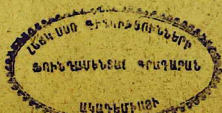 ՀՍՍՌ ԳԻՏՈՒԹՅՈՒՆՆԵՐԻ
ՖՈՒՆԴԱՄԵՆՏԱԼ ԳՐԱԴԱՐԱՆ
ԱԿԱԴԵՄԻԱՅԻ